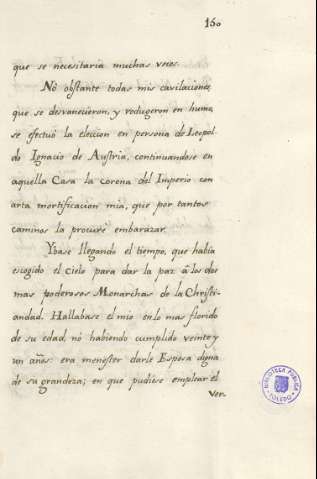 160
que se necesitaria muchas veces.
No obstante todas mis cavilaciones,
que se desvanecieron, y redugeron en humo,
se efectuó la eleccion en persona de Leopol-
do Ignacio de Austria, continuandose en
aquella Casa la corona del Imperio con
arta mortificacion mia, que por tantos
caminos la procuré embarazar.
Ybase llegando el tiempo, que habia
escogido el cielo para dar la paz á los dos
mas poderosos Monarchas de la Christi-
andad. Hallabase el mio en lo mas florido
de su edad, no habiendo cumplido veinte y
un años: era menester darle Esposa digna
de su grandeza; en que pudiese emplear el
ver.
BIBLIOTECA PUBLICA
TOLEDO